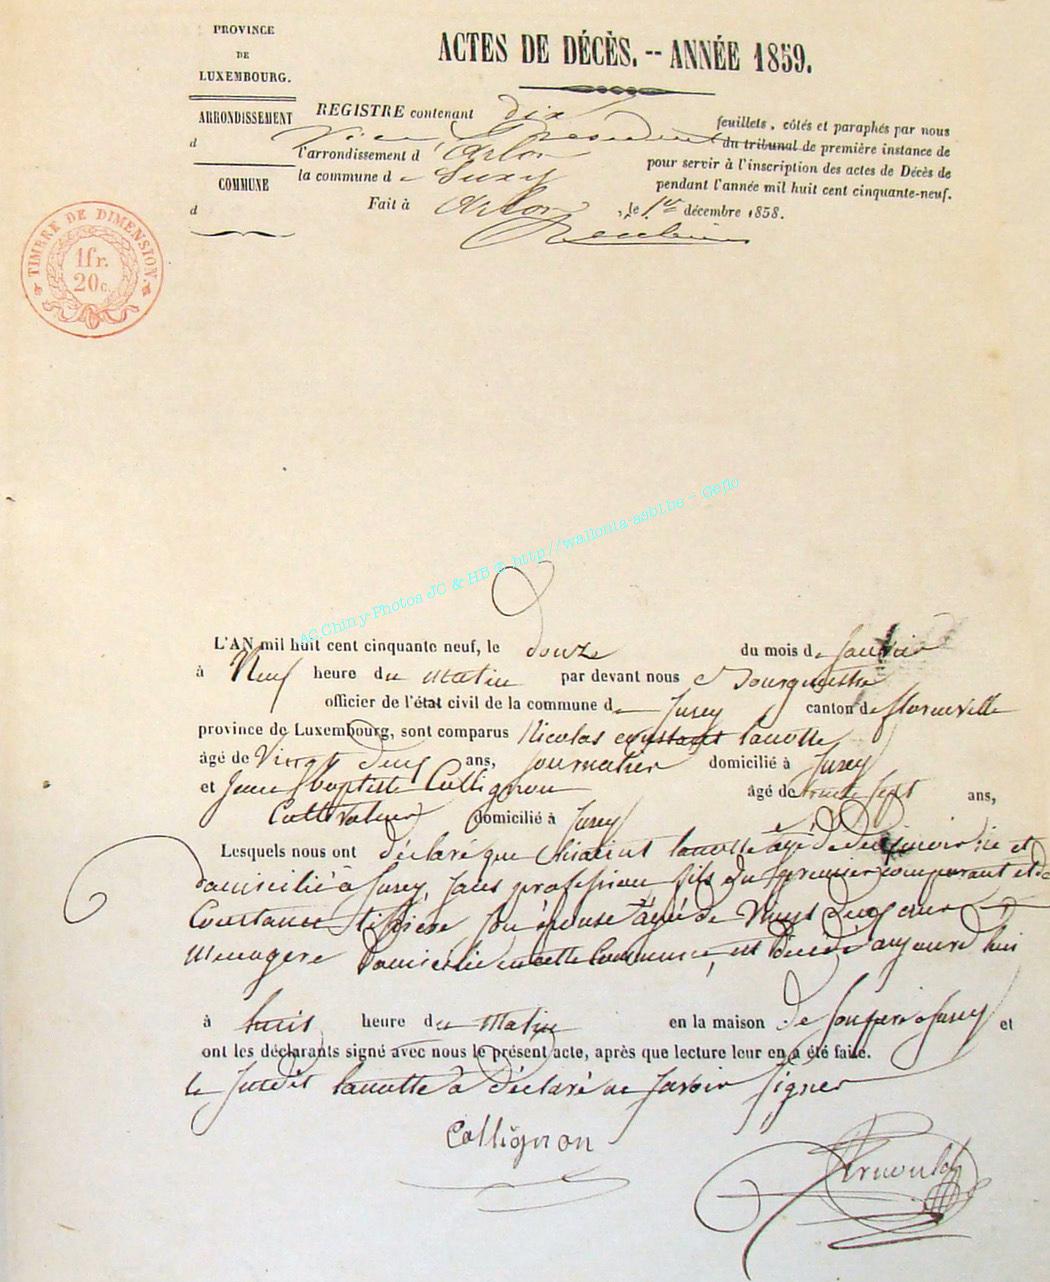 PROVINCE
DE
LUXEMBOURG.
ARRONDISSEMENT
d
COMMUNE
d
ACTES DE DÉCÈS. -- ANNÉE 1859.
REGISTRE contenant dix feuillets, côtés et paraphés par nous
Vice Président du tribunal de première instance de
l'arrondissement d'Arlon pour servir à l'inscription des actes de Décès de
la commune de Suxy pendant l'année mil huit cent cinquante-neuf.
Fait à Arlon, le 1er décembre 1858.
TIMBRE DE DIMENSION.
1fr.
20c.
AC Chiny-Photos JC & HB © http//wallonia-asbl.be - Geflo
L'AN mil huit cent cinquante neuf, le douze du mois de Janvier
à Neuf heure du matin par devant nous Bourgmestre
officier de l'état civil de la commune de Suxy canton de florenville
province de Luxembourg, sont comparus Nicolas constant lanotte
âgé de Vingt deux ans, journalier domicilié à Suxy
et Jean Baptiste Collignon âgé de trente sept ans,
Cultivateur domicilié à Suxy
Lesquels nous ont déclaré que lanotte agé de né et
domicilié à Suxy, sans profession fils du premier comparant et de
Constance son épouse agée de Vingt deux ans
menagère domiciliée en cette Commune, est décédé aujourd'hui
à huit heure du Matin en la maison de son père à Suxy et
ont les déclarants signé avec nous le présent acte, après que lecture leur en a été faite.
le susdit lanotte à déclaré ne savoir signer
Collignon
Arnould